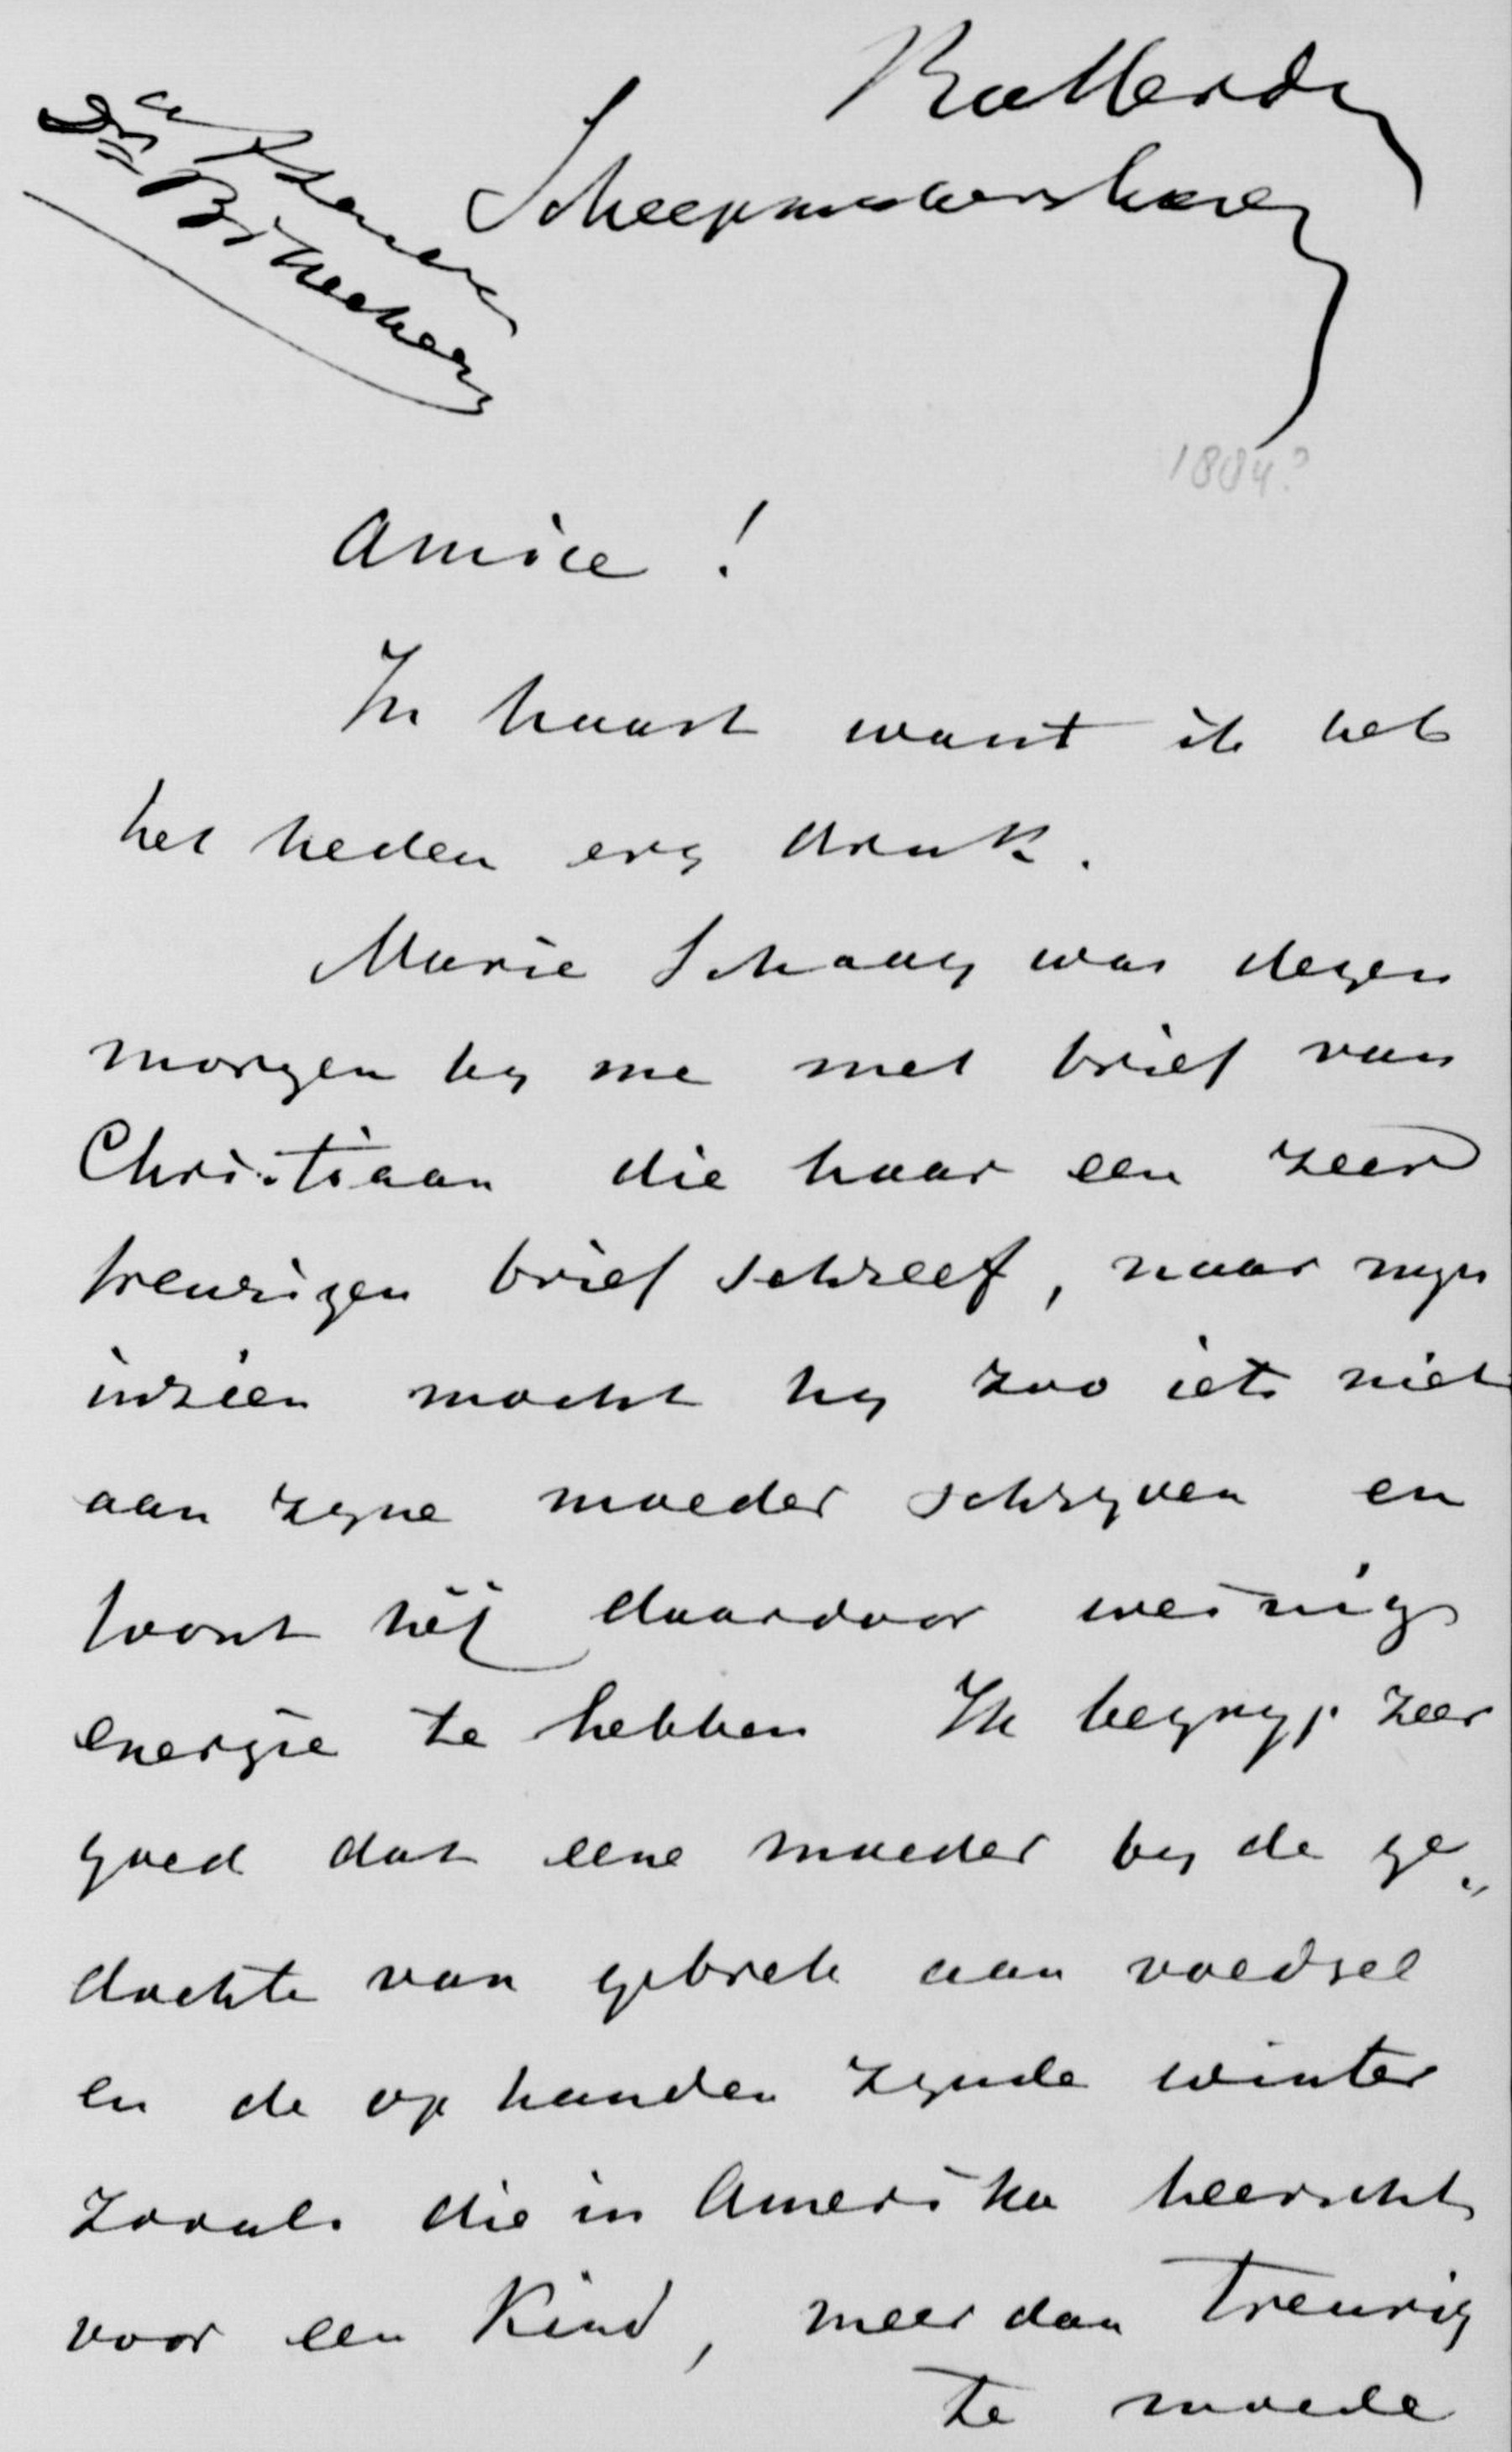 Rotterdam
Scheepmakershaven
1884?
Amice !
In haast want ik heb
het heden erg druk.
Marie Schaay was dezen
morgen by me met brief van
Christiaan die haar een zeer
treurigen brief schreef, naar myn
inzien mocht hy zoo iets niet
aan zyne moeder schryven en
toont hij daardoor weinig
energie te hebben Ik begryp zeer
goed dat eene moeder by de ge„
dachte van gebrek aan voedsel
en de op handen zynde winter
zooals die in Amerika heerscht
voor een Kind, meer dan treurig
te moede